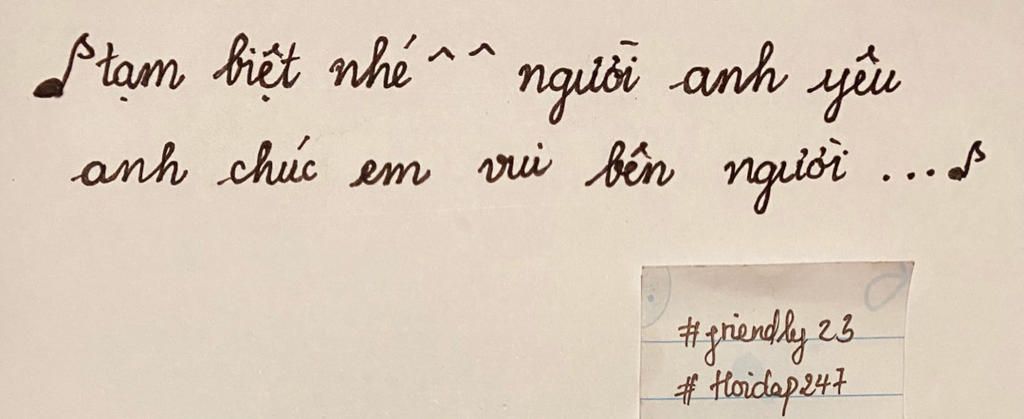 ♪tạm biệt nhé ^ ^ người anh yêu
anh chúc em vui bên người ...♪
#friendly23
# Hoidap247